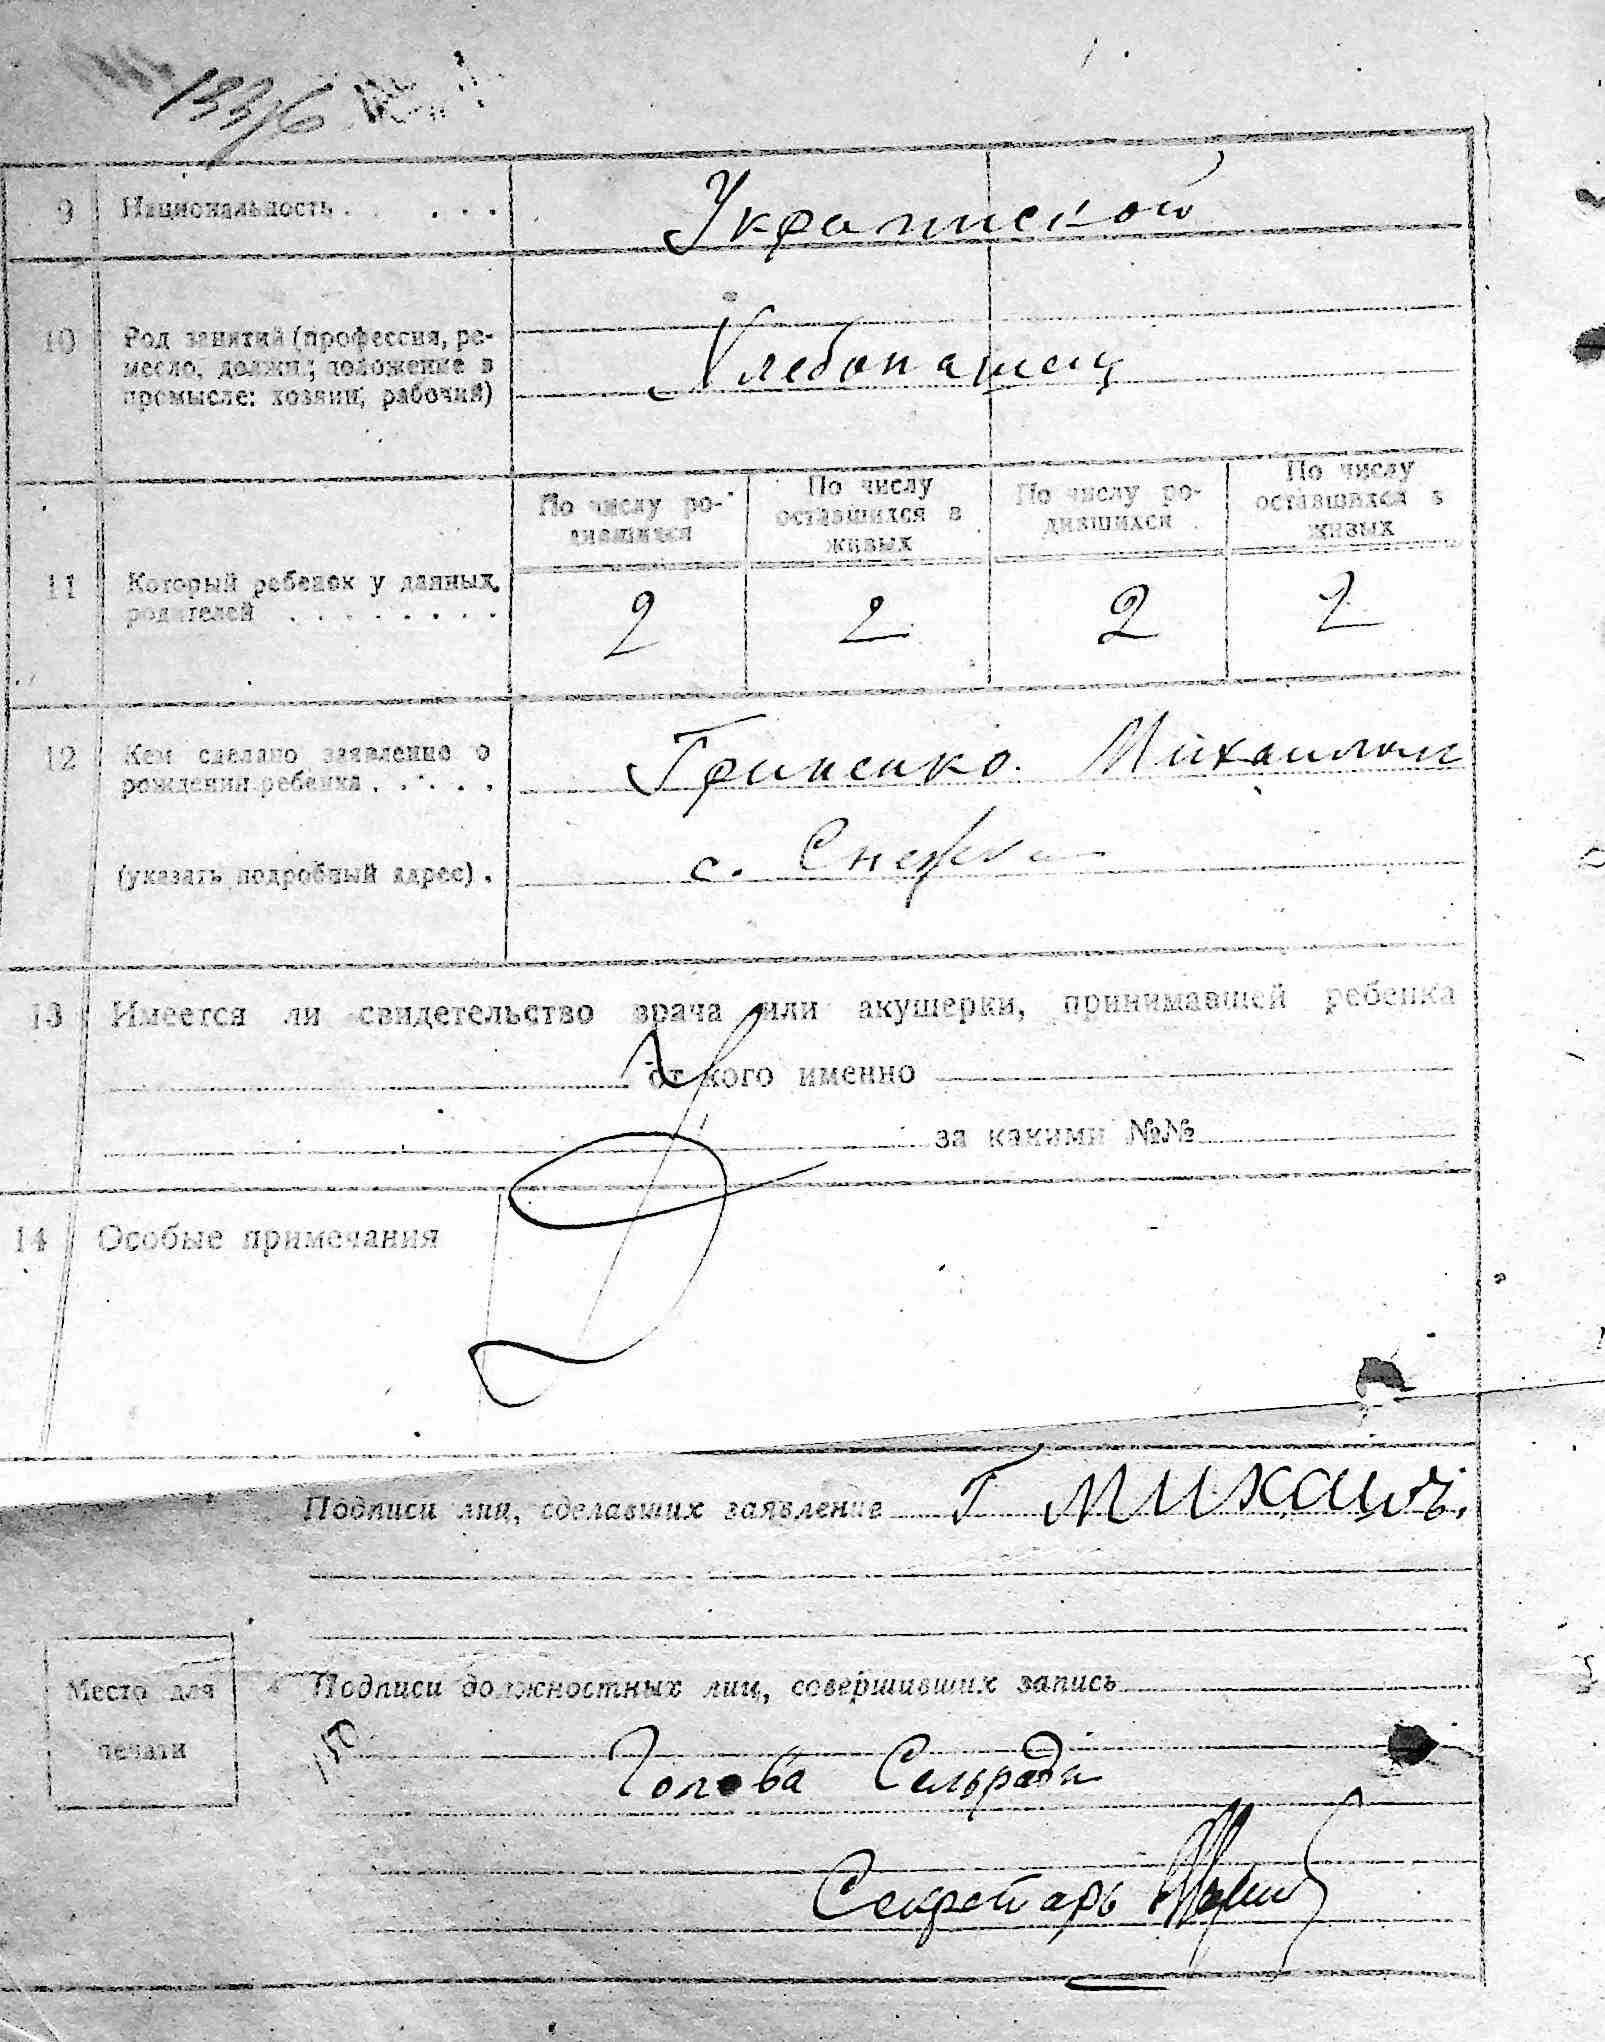 133/6
9 Национальность . . . . . Украинской
10 Род занятий (профессия, ре-
месло, должн.; положение в
промысле: хозяин, рабочий)
Хлебопашец
По числу ро-
дившихся
По числу
оставшихся в
живых
По числу ро-
дившихся
По числу
оставшихся в
живых
11 Который ребенок у данных
родителей . . . . . . . .
2 2 2 2
12 Кем сделано заявление о
рождении ребенка . . . . .
Гриненко Михаилом
(указать подробный адрес) .
с. Снежки
13 Имеется ли свидетельство врача или акушерки, принимавшей ребенка
от кого именно
за какими №№
14 Особые примечания
Подписи лиц, сделавших заявление Г Михаилъ.
Место для
печати
Подписи должностных лиц, совершивших запись
Голова Сельради
Секретарь